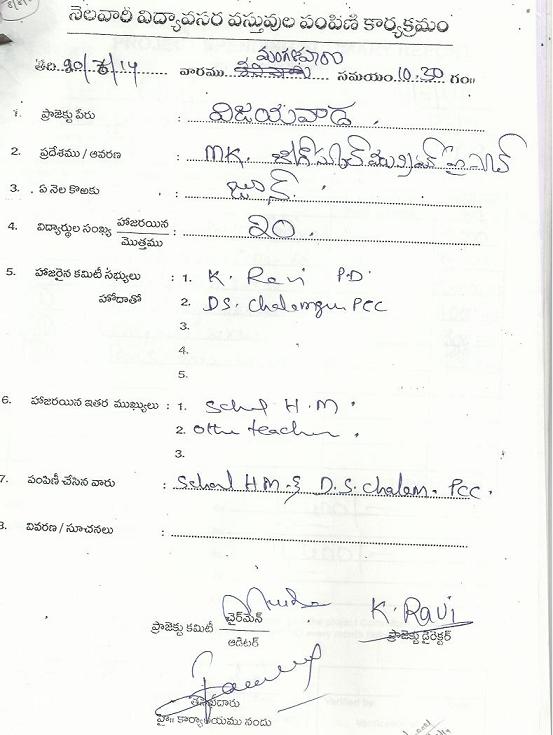 నెలవారి విద్యావసర వస్తువుల పంపిణి కార్యక్రమం
మంగళవారం
తేది 20/8/14 వారము సమయం 10.30 గం॥
1. ప్రాజెక్టు పేరు : విజయవాడ
2. ప్రదేశము / ఆవరణ : MK.
3. ఏ నెల కొఱకు : జూన్.
4. విద్యార్థుల సంఖ్య హాజరయిన / మొత్తము : 20.
5. హాజరైన కమిటీ సభ్యులు : 1. K. Ravi P.D.
హోదాతో 2. D.S. Chalam PCC
3.
4.
5.
6. హాజరయిన ఇతర ముఖ్యులు : 1. School H.M.
2. Other teacher.
3.
7. పంపిణీ చేసిన వారు : School HM & D.S. Chalam. PCC.
8. వివరణ / సూచనలు :
ప్రాజెక్టు కమిటీ చైర్‌మేన్ / ఆడిటర్
K. Ravi
ప్రాజెక్టు డైరెక్టర్
హై॥ కార్యాలయము నందు